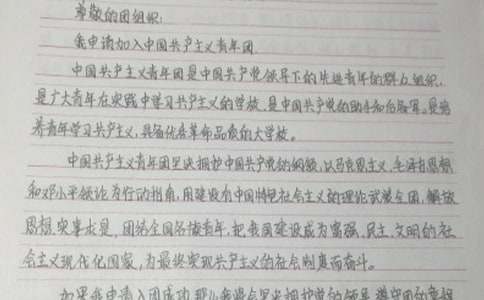 尊敬的团组织:
我申请加入中国共产主义青年团.
中国共产主义青年团是中国共产党领导下的先进青年的群众组织,
是广大青年在实践中学习共产主义的学校,是中国共产党的助手和后备军.是培
养青年学习共产主义,具备优good革命品质的大学校。
中国共产主义青年团坚决拥护中国共产党的纲领,以马克思主义,毛泽东思想
和邓小平理论为行动指南,用建设有中国特色社会主义的理论武装全团,解放
思想,实事求是,团结全国各族青年,把我国建设成为富强,民主,文明的社
会主义现代化国家,为最终实现共产主义的社会制度而奋斗。
如果我申请入团成功,那么我将会坚决拥护党的领导,遵守团的章程